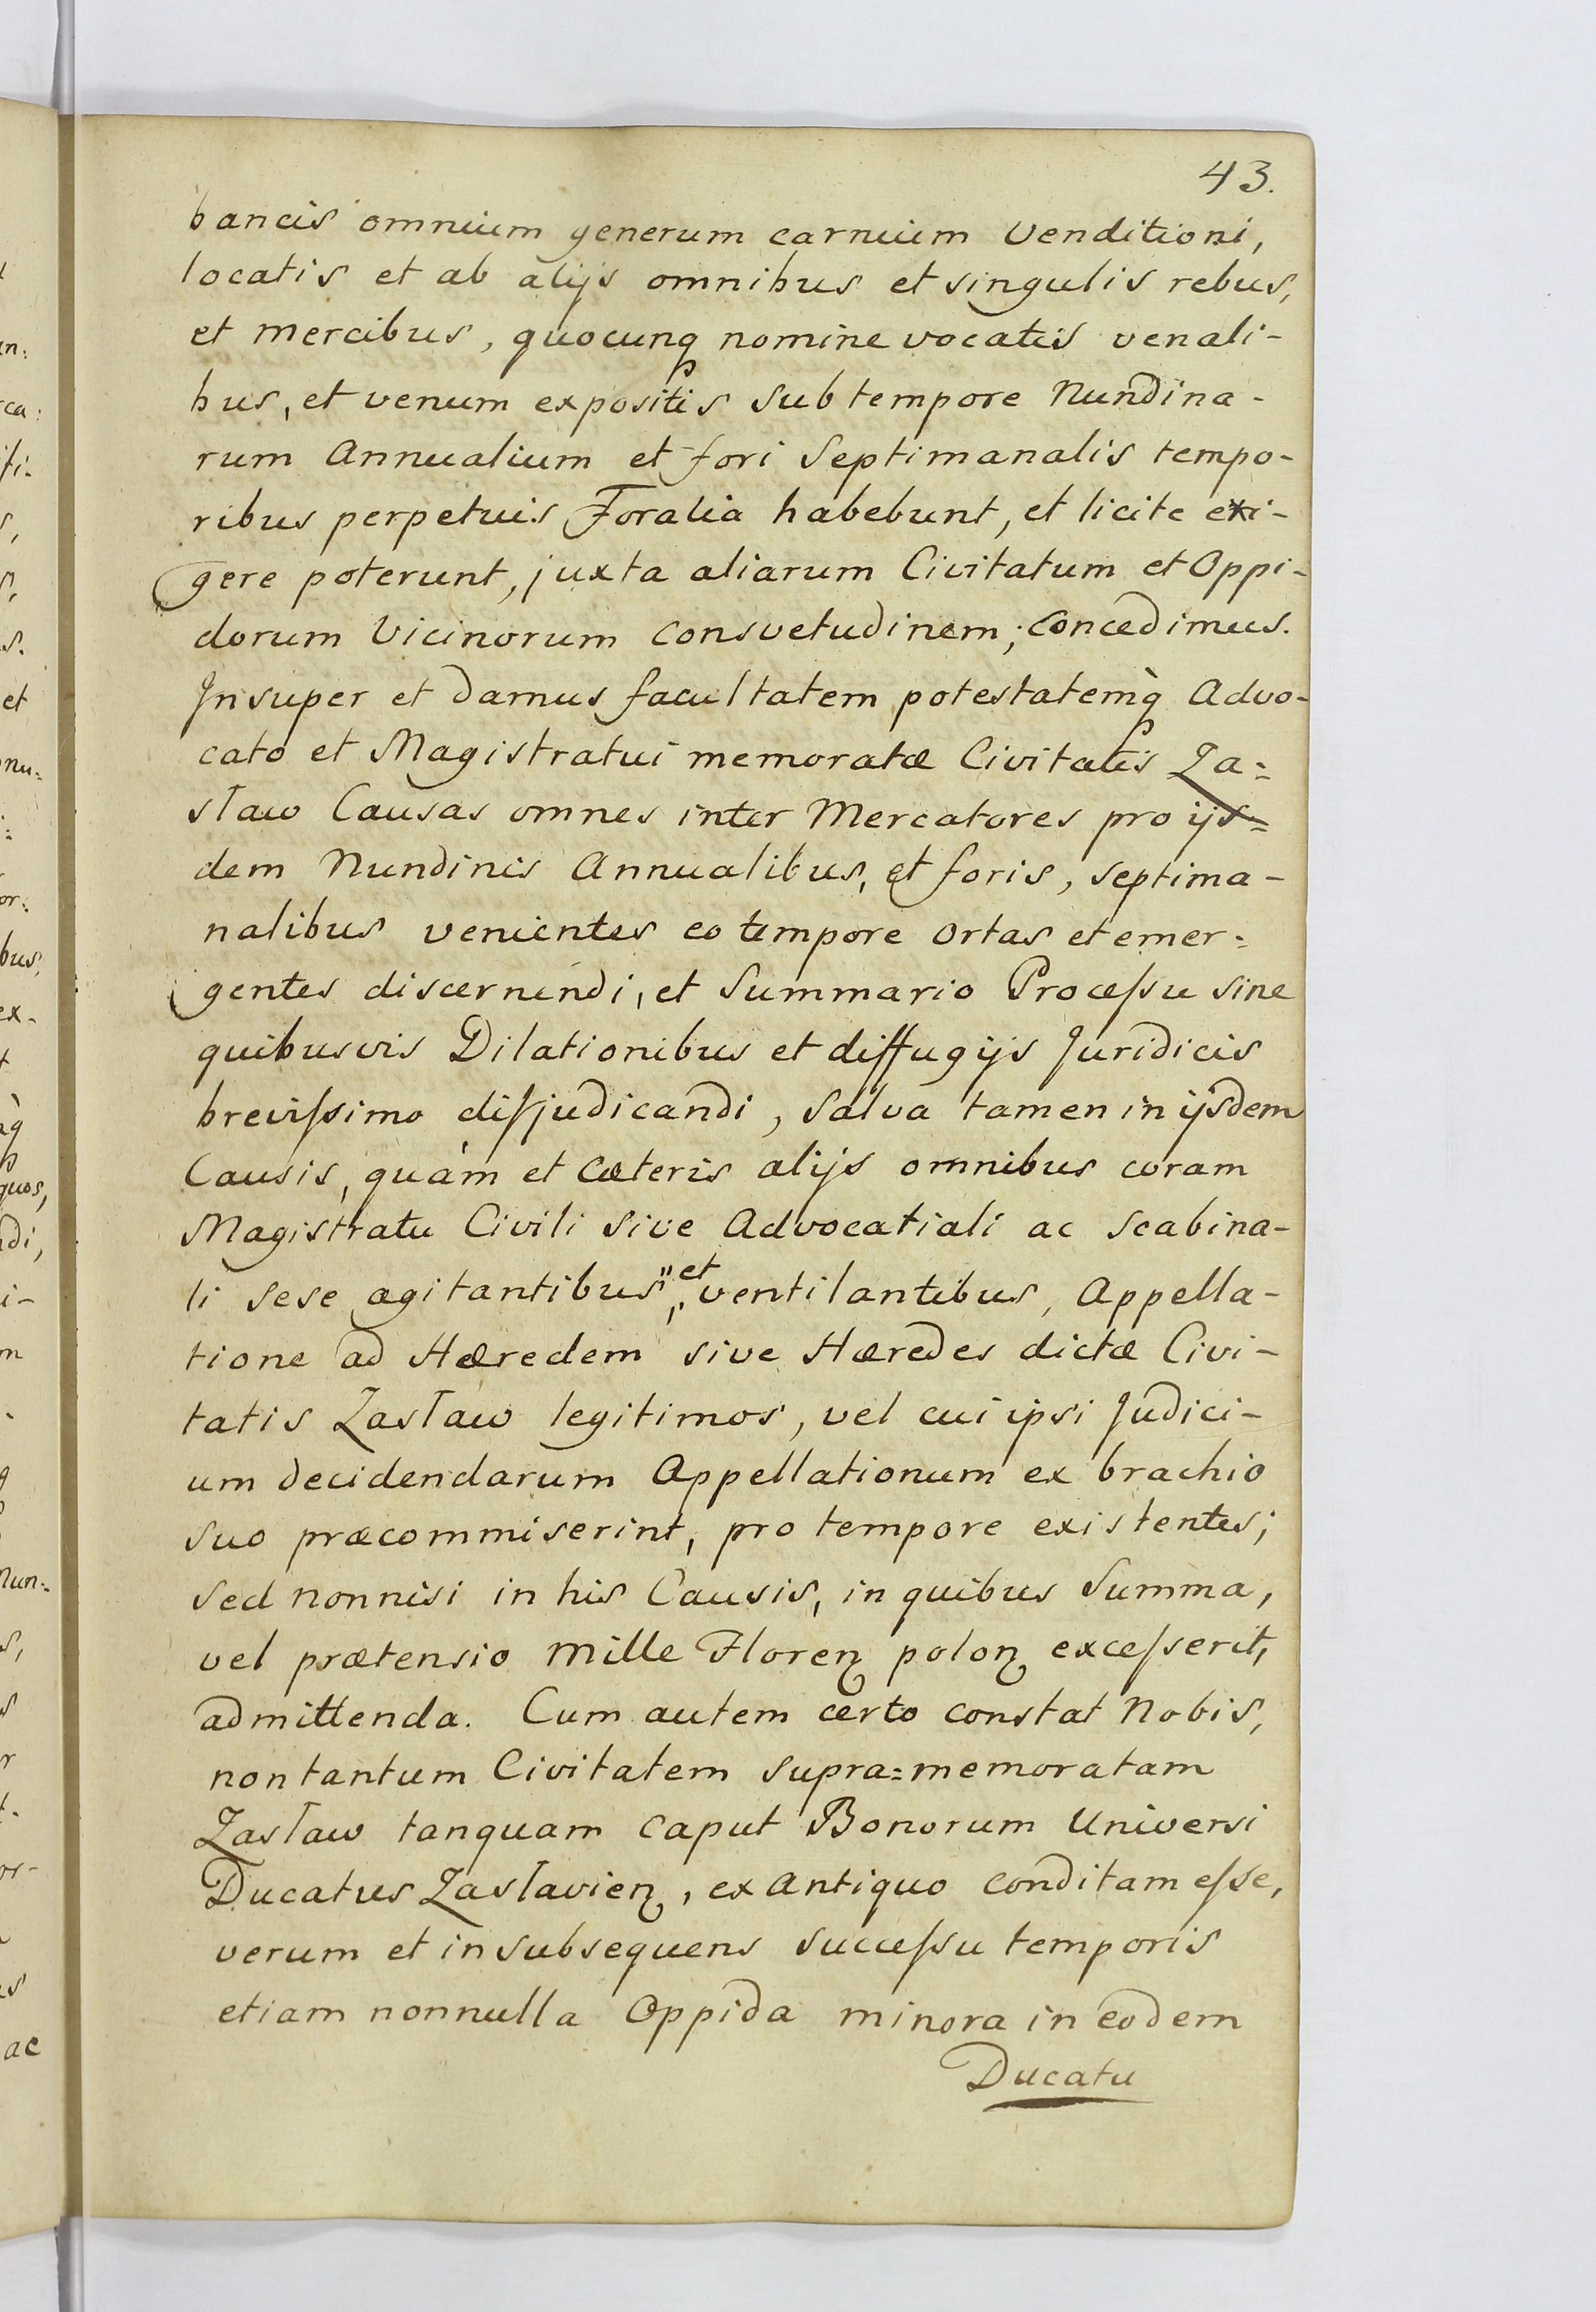 43.
bancis omnium generum carnium Venditioni,
locatis et ab alijs omnibus et singulis rebus,
et mercibus, quocunq nomine vocatis venali-
bus, et venum expositis sub tempore Nundina-
rum Annualium et fori Septimanalis tempo-
ribus perpetuis Foralia habebunt, et licite exi-
gere poterunt, juxta aliarum Civitatum et Oppi-
dorum Vicinorum consvetudinem; concedimus.
Insuper et damus facultatem potestatemq̀ Advo-
cato et Magistratui memoratæ Civitatis Za=
sław Causas omnes inter Mercatores pro ijs=
dem Nundinis Annualibus, et foris, septima-
nalibus venientes eo tempore ortas et emer=
gentes discernendi, et Summario Proceſsu sine
quibusvis Dilationibus et diffugijs Juridicis
breviſsimo diſjudicandi, Salva tamen in ijsdem
Causis, quàm et Cæteris alijs omnibus coram
Magistratu Civili sive Advocatiali ac scabina-
li sese agitantibus", et ventilantibus, Appella-
tione ad Hæredem sive Hæredes dictæ Civi-
tatis Zasław legitimos, vel cui ipsi Judici-
um decidendarum Appellationum ex brachio
suo præcommiserint, pro tempore existentes;
sed nonnisi in his Causis, in quibus Summa,
vel prætensio Mille Floren̨ polon̨ exceſserit,
admittenda. Cum autem certo constat Nobis,
non tantum Civitatem supra=memoratam
Zasław tanquam caput Bonorum Universi
Ducatus Zasłavien̨, ex antiquo conditam eſse,
verum et in subsequens succeſsu temporis
etiam nonnulla Oppida minora in eodem
Ducatu
in:
ca:
et
nu=
or:
bus,
ex-
quos,
di,
i-
m
Nun=
or-
ac